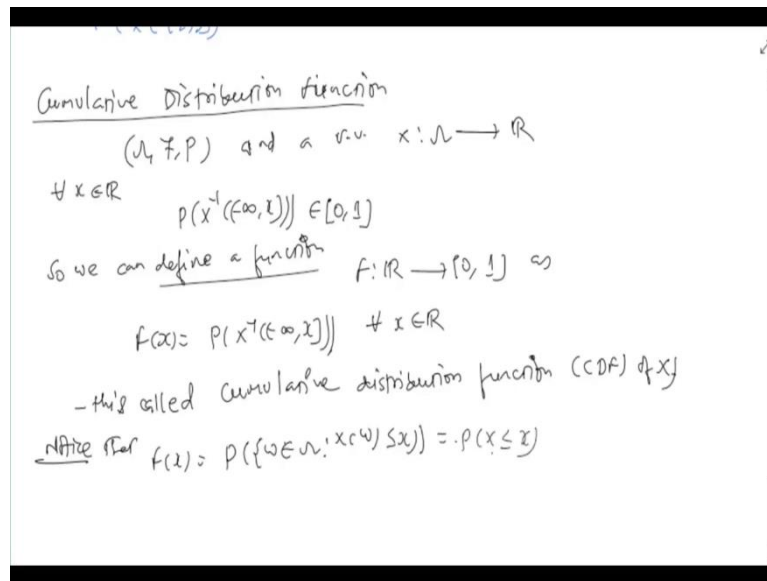 Cumulative Distribution function
(Ω, F, P) and a r.v. X : Ω → ℝ
∀ x ∈ ℝ
P(X⁻¹((-∞, x])) ∈ [0, 1]
So we can define a function F: ℝ → [0, 1] as
F(x) = P(X⁻¹((-∞, x])) ∀ x ∈ ℝ
- this called cumulative distribution function (CDF) of X
Notice that F(x) = P({ω ∈ Ω : X(ω) ≤ x}) = P(X ≤ x)